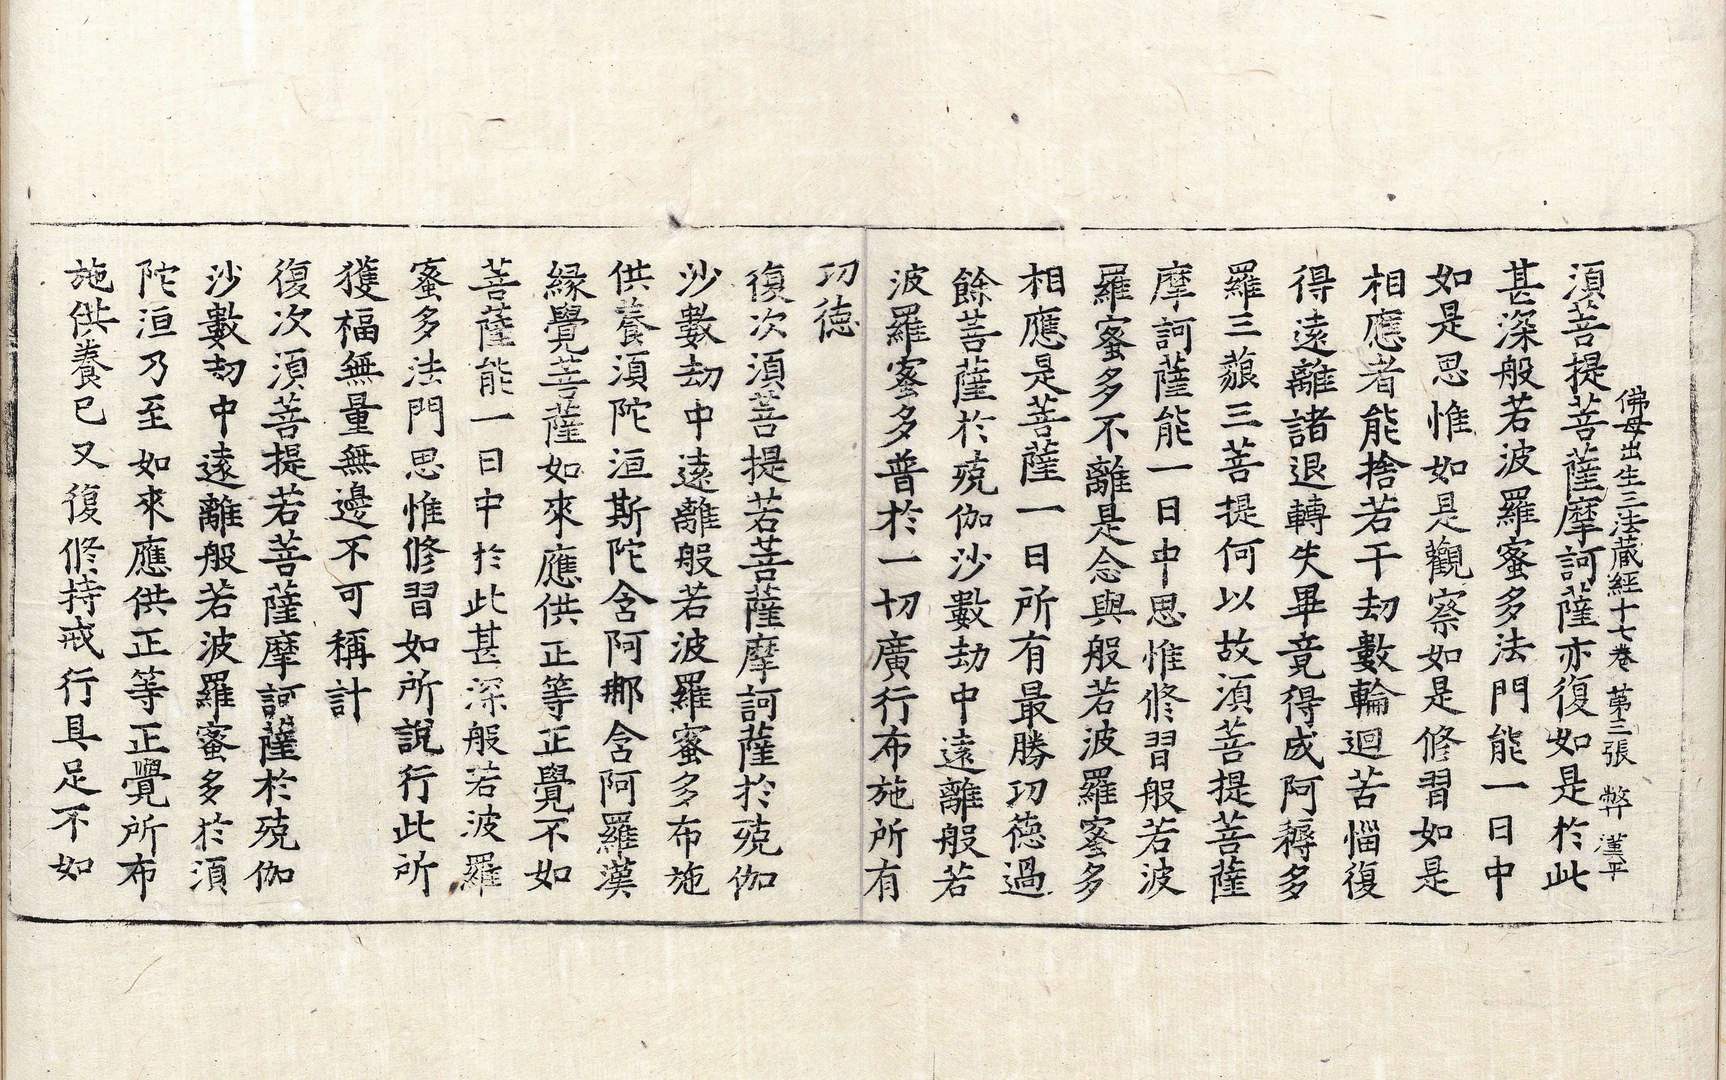 佛母出生三法藏經十七卷 第三張 弊 漢平
須菩提菩薩摩訶薩亦復如是於此
甚深般若波羅蜜多法門能一日中
如是思惟如是觀察如是修習如是
相應者能捨若干劫數輪迴苦惱復
得遠離諸退轉失畢竟得成阿耨多
羅三藐三菩提何以故須菩提菩薩
摩訶薩能一日中思惟修習般若波
羅蜜多不離是念與般若波羅蜜多
相應是菩薩一日所有最勝功德過
餘菩薩於殑伽沙數劫中遠離般若
波羅蜜多普於一切廣行布施所有
功德
復次須菩提若菩薩摩訶薩於殑伽
沙數劫中遠離般若波羅蜜多布施
供養須陀洹斯陀含阿那含阿羅漢
緣覺菩薩如來應供正等正覺不如
菩薩能一日中於此甚深般若波羅
蜜多法門思惟修習如所說行此所
獲福無量無邊不可稱計
復次須菩提若菩薩摩訶薩於殑伽
沙數劫中遠離般若波羅蜜多於須
陀洹乃至如來應供正等正覺所布
施供養已又復修持戒行具足不如